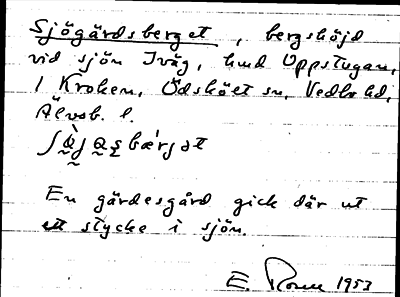 Sjögärdsberget, bergshöjd
vid sjön Iväg, hmd Uppstugan,
1 Kroken, Ödskölt sn, Vedbo hd,
Älvsb. l.
bær̀jət
En gärdesgård gick där ut
ett stycke i sjön.
E. 1953